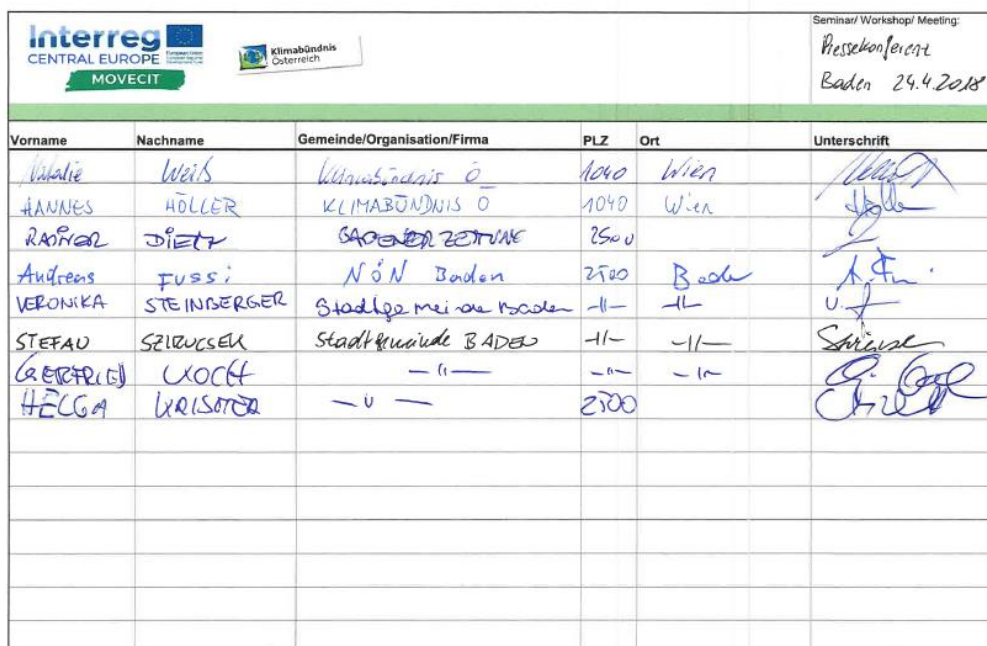 Interreg
CENTRAL EUROPE
MOVECIT
Klimabündnis
Österreich
Seminar/ Workshop/ Meeting:
Pressekonferenz
Baden 24.4.2018
Vorname Nachname Gemeinde/Organisation/Firma PLZ Ort Unterschrift
Natalie Weiß Klimabündnis Ö 1040 Wien
HANNES HÖLLER KLIMABÜNDNIS Ö 1040 Wien
RAINER DIETZ BADENER ZEITUNG 2500
Andreas FUSSi NÖN Baden 2500 Baden
VERONIKA STEINBERGER Stadtgemeinde Baden -||- -||-
STEFAN SZIRUCSEK Stadtgemeinde BADEN -||- -||-
GERFRIED KOCH -||- -||- -||-
HELGA KRISMER -||- 2500